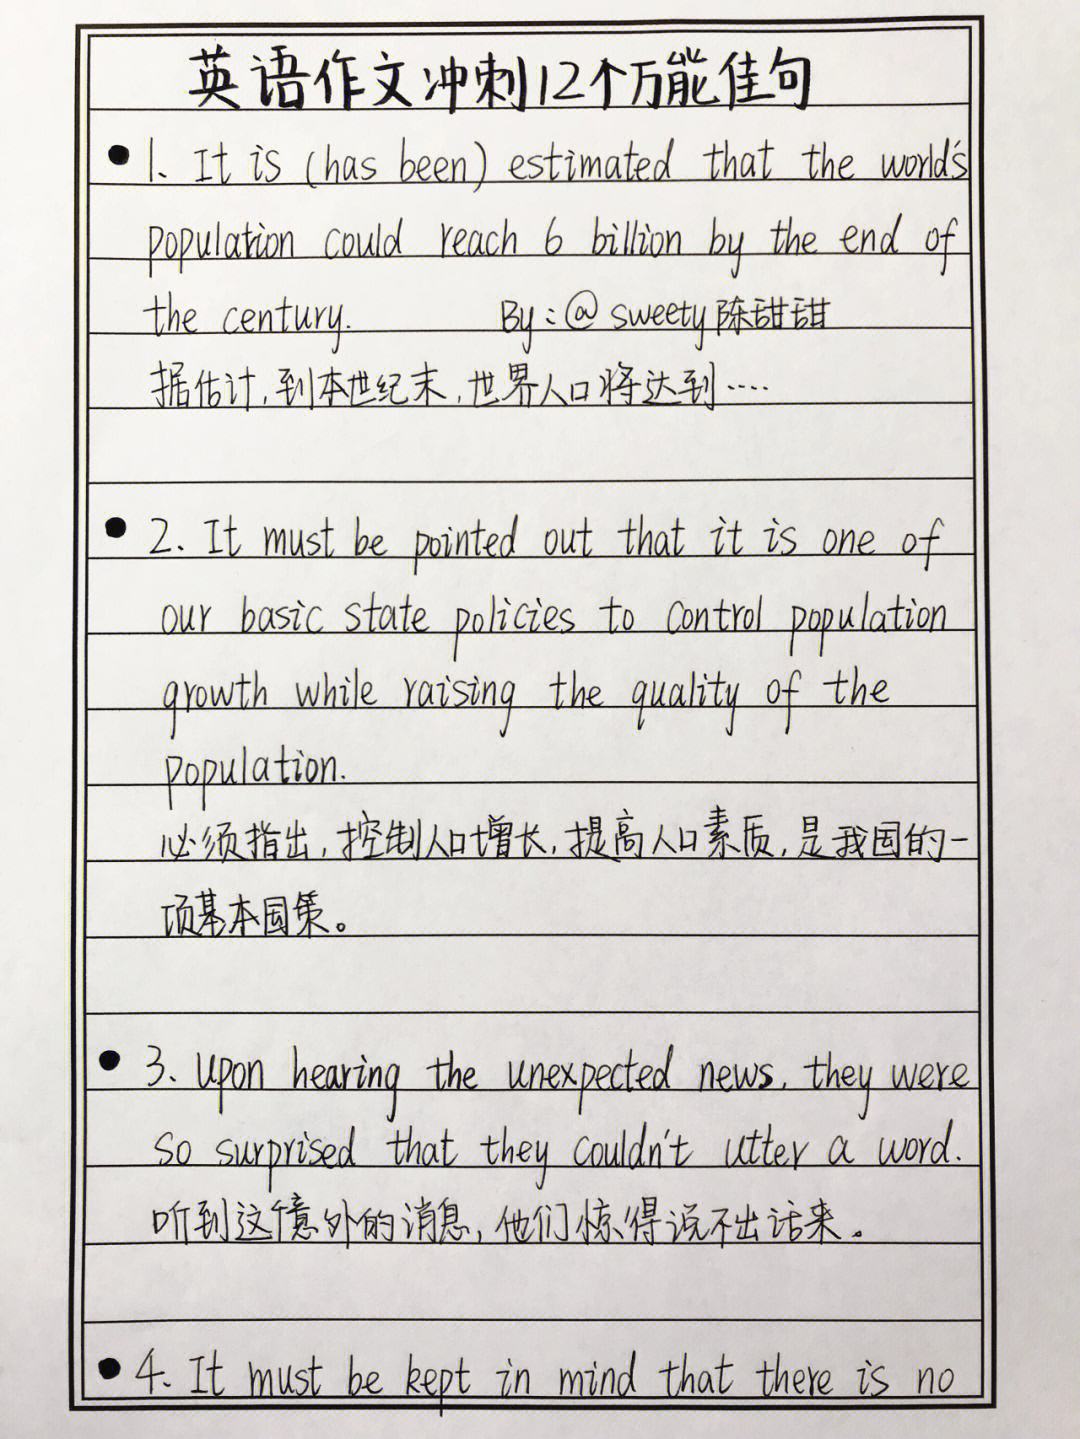 英语作文冲刺12个万能佳句
1. It is (has been) estimated that the world's
population could reach 6 billion by the end of
the century. By:@sweety陈甜甜
据估计,到本世纪末,世界人口将达到····
2. It must be pointed out that it is one of
our basic state policies to control population
growth while raising the quality of the
population.
必须指出,控制人口增长,提高人口素质,是我国的一
项基本国策。
3. Upon hearing the unexpected news, they were
so surprised that they couldn't utter a word.
听到这个意外的消息,他们惊得说不出话来。
4. It must be kept in mind that there is no